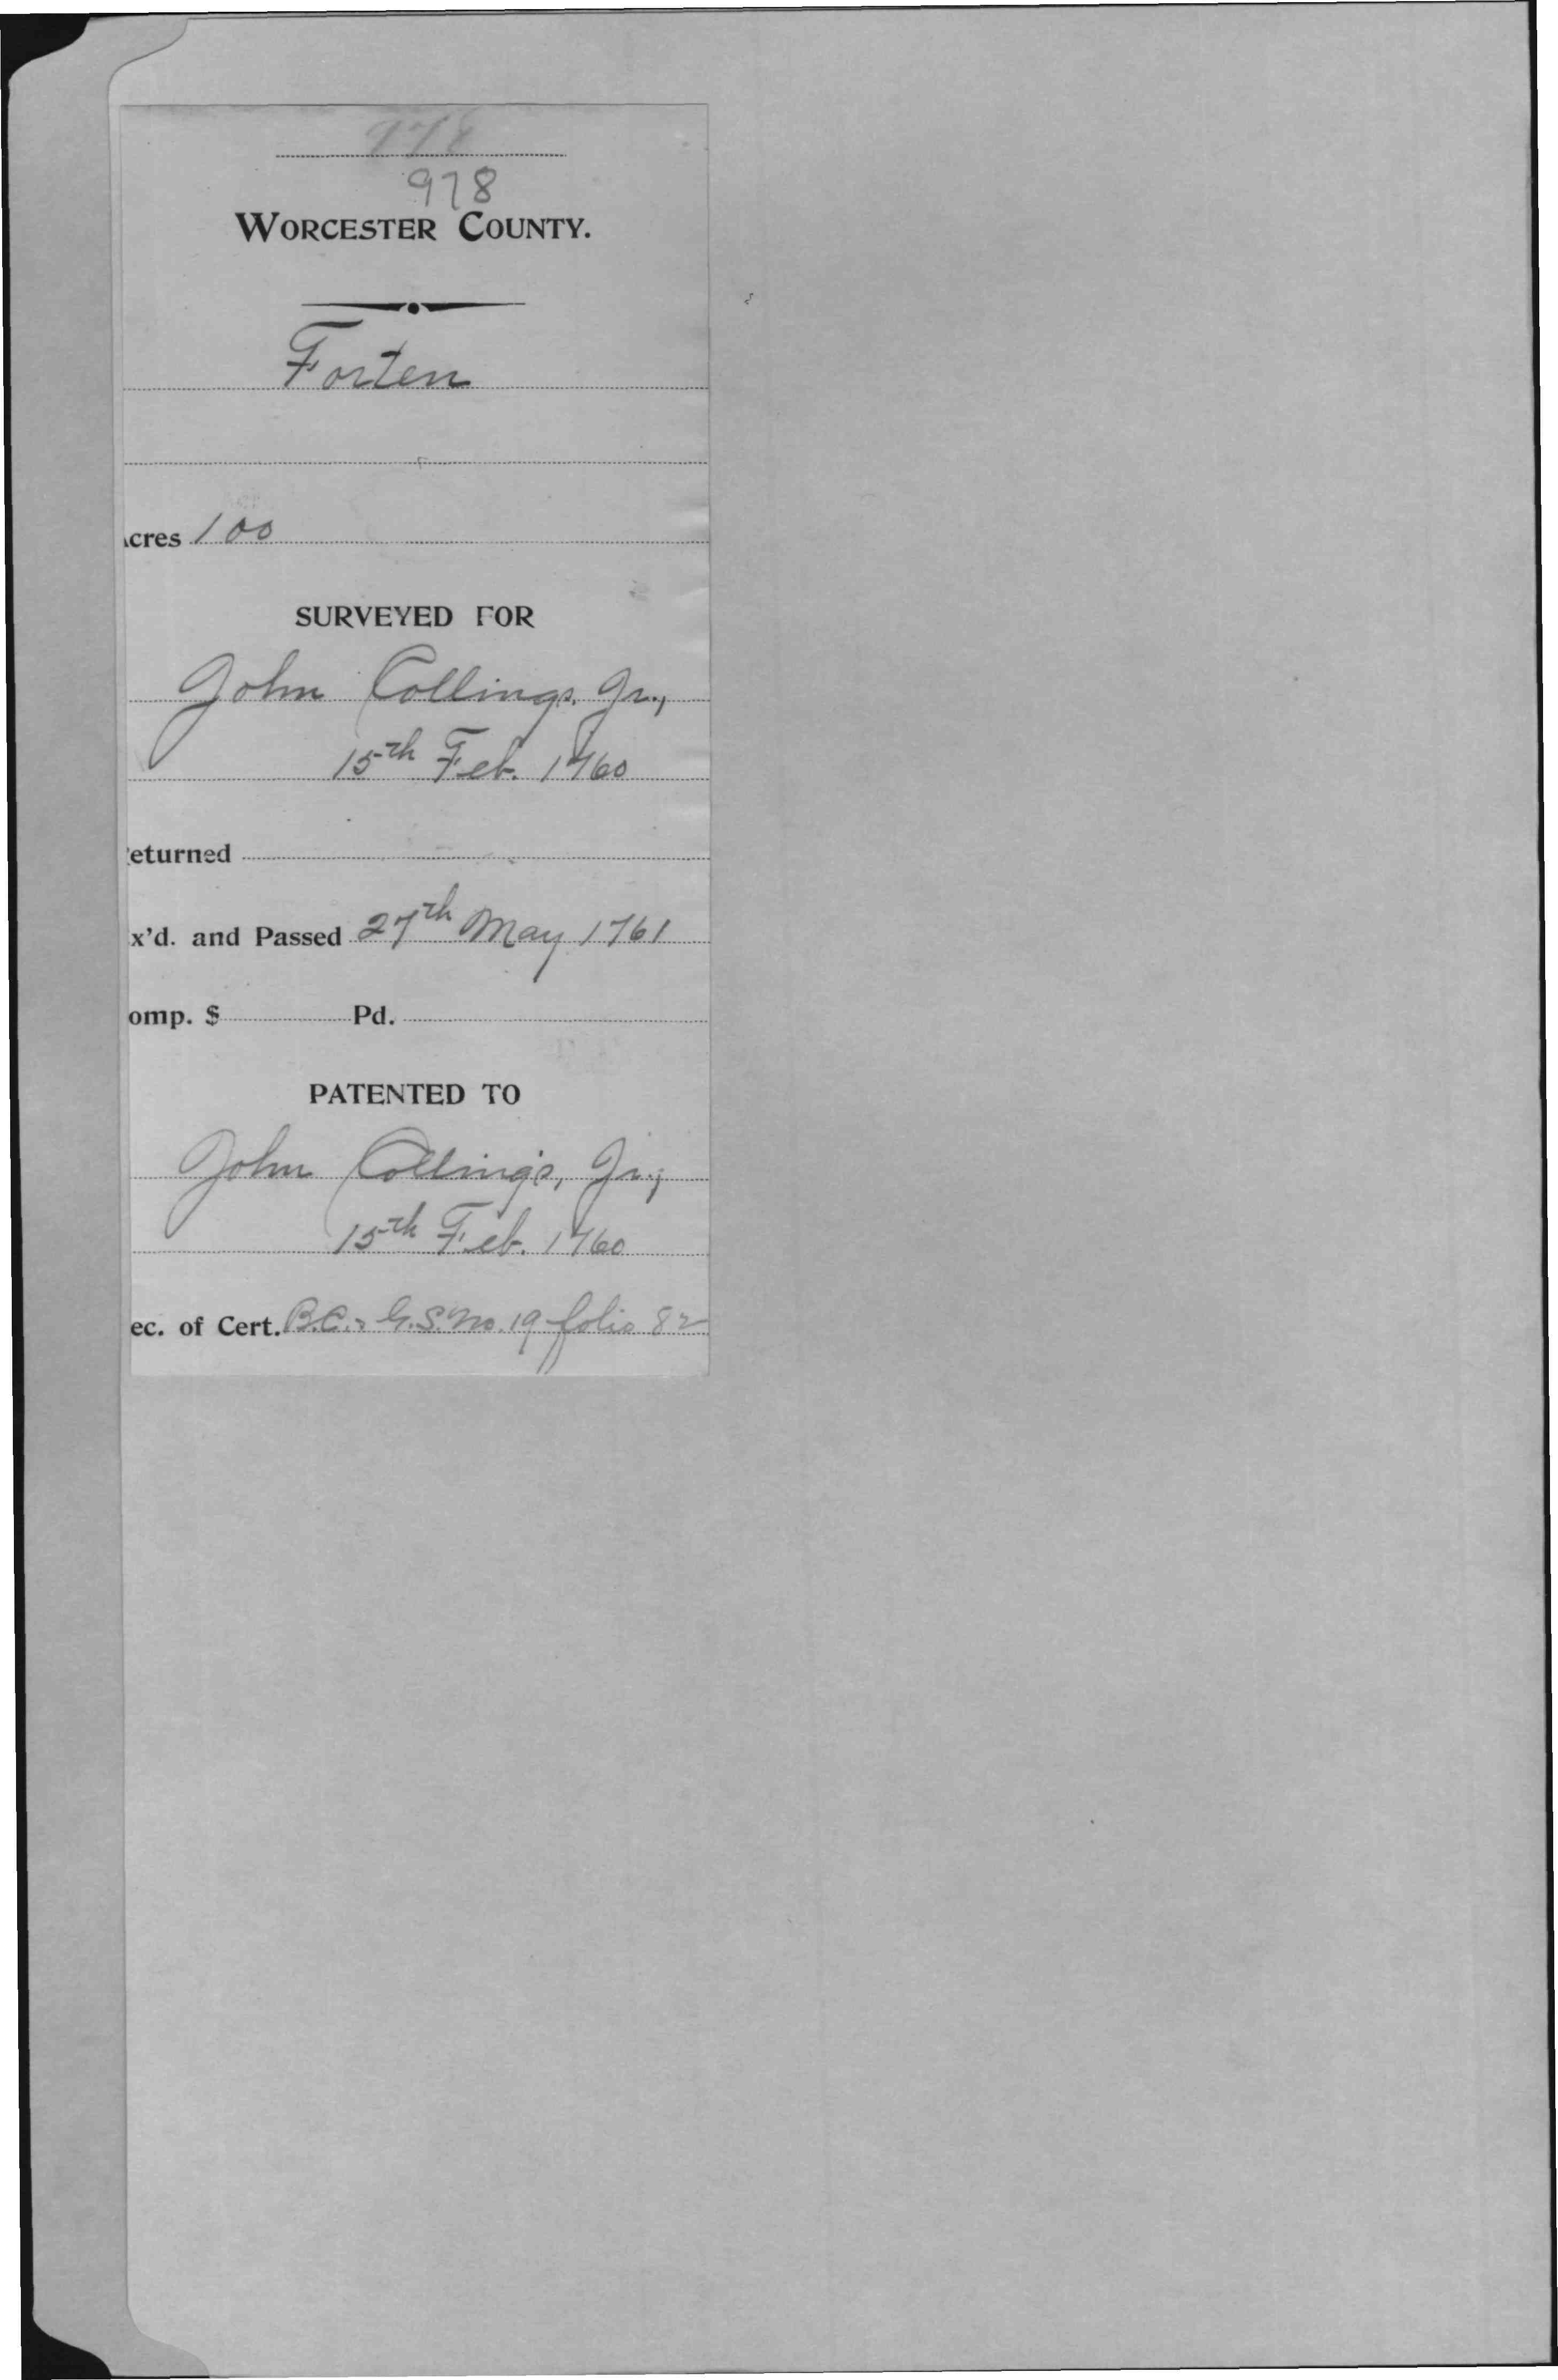 978
978
WORCESTER COUNTY.
Forten
cres 100
SURVEYED FOR
John Collings, Jr.,
15th Feb. 1760
eturned
x'd. and Passed 27th May 1761
omp. $ Pd.
PATENTED TO
John Collings, Jr.,
15th Feb. 1760
ec. of Cert. B.C. & G.S. No. 19 folio 82